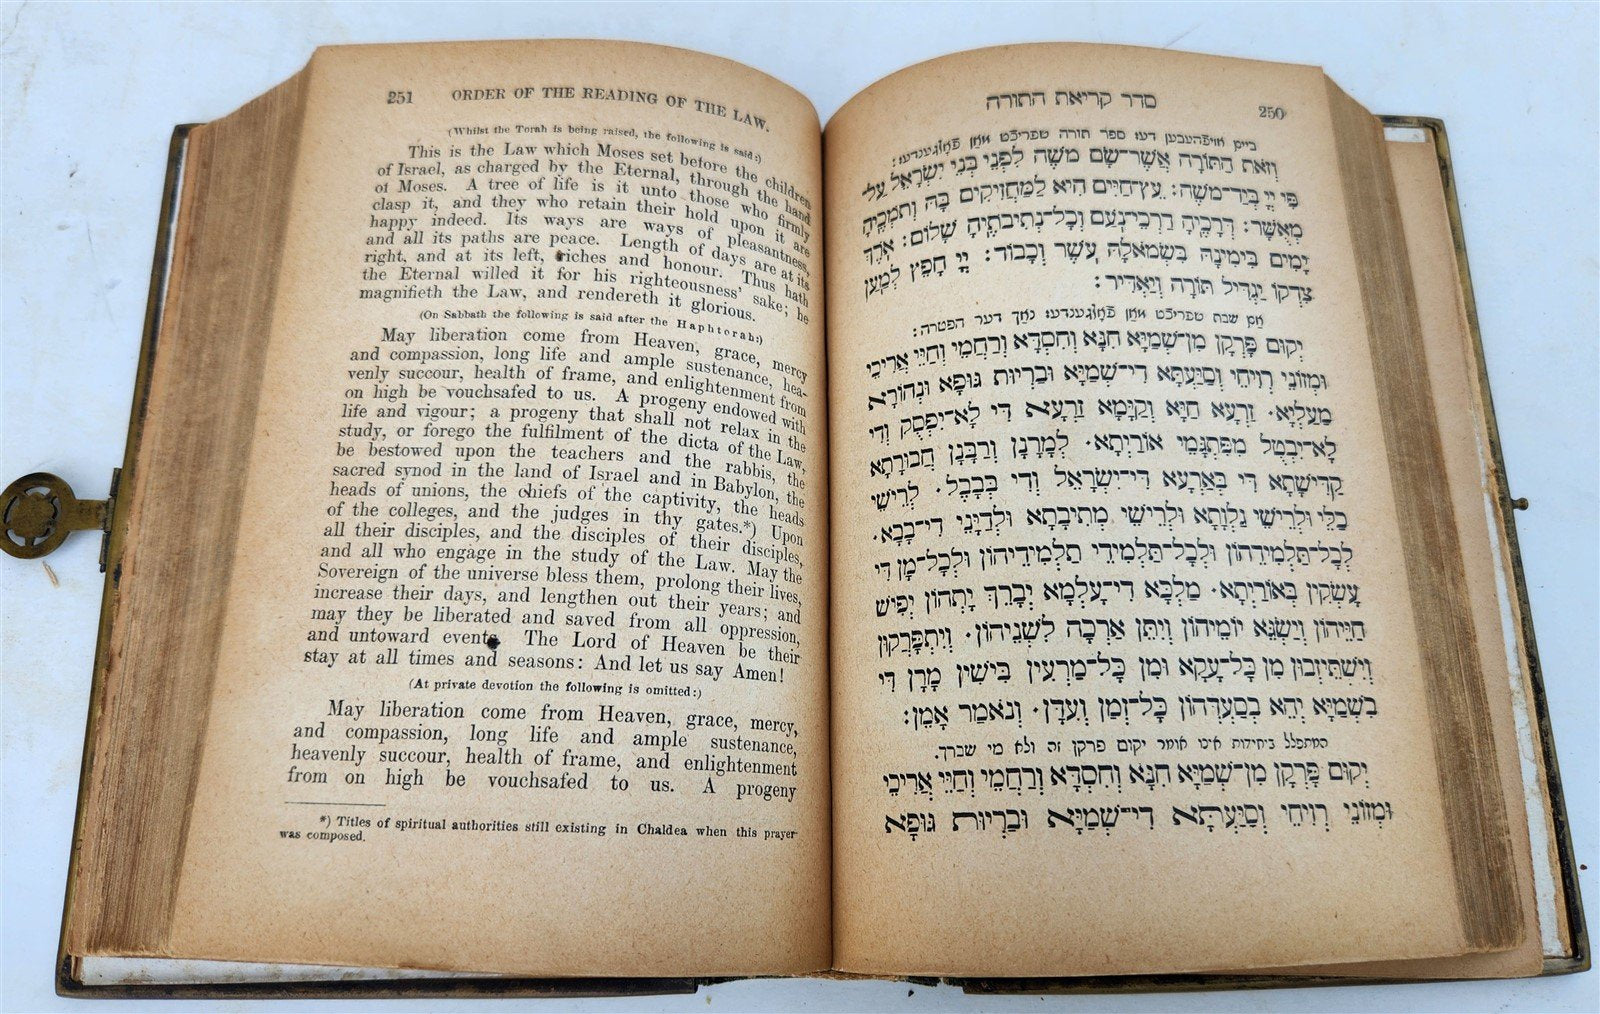 סדר קריאת התורה 250
ביים אויפהעבען דעז ספר תורה שפריכט מאן פאָלגענדעז:
וְזֹאת הַתּוֹרָה אֲשֶׁר־שָׂם מֹשֶׁה לִפְנֵי בְּנֵי יִשְׂרָאֵל עַל־
פִּי יְיָ בְּיַד־מֹשֶׁה: עֵץ־חַיִּים הִיא לַמַּחֲזִיקִים בָּהּ וְתֹמְכֶיהָ
מְאֻשָּׁר: דְּרָכֶיהָ דַרְכֵי־נֹעַם וְכָל־נְתִיבֹתֶיהָ שָׁלוֹם: אֹרֶךְ
יָמִים בִּימִינָהּ בִּשְׂמֹאלָהּ עֹשֶׁר וְכָבוֹד: יְיָ חָפֵץ לְמַעַן
צִדְקוֹ יַגְדִּיל תּוֹרָה וְיַאְדִּיר:
אם שבת שפריכט מאן פאָלגענדעז נאך דער הפטרה:
יְקוּם פָּרְקָן מִן־שְׁמַיָּא חִנָּא וְחִסְדָּא וְרַחֲמֵי וְחַיֵּי אֲרִיכֵי
וּמְזוֹנֵי רְוִיחֵי וְסַיַּעְתָּא דִי־שְׁמַיָּא וּבַרְיוּת גּוּפָא וּנְהוֹרָא
מַעַלְיָא. זַרְעָא חַיָּא וְקַיָּמָא זַרְעָא דִּי לָא־יִפְסֻק וְדִי
לָא־יִבְטֻל מִפִּתְגָּמֵי אוֹרַיְתָא. לְמָרָנָן וְרַבָּנָן חֲבוּרָתָא
קַדִּישָׁתָא דִּי בְּאַרְעָא דְיִשְׂרָאֵל וְדִי בְּבָבֶל. לְרֵישֵׁי
כַלֵּי וּלְרֵישֵׁי גַלְוָתָא וּלְרֵישֵׁי מְתִיבָתָא וּלְדַיָּנֵי דִי־בָבָא.
לְכָל־תַּלְמִידֵהוֹן וּלְכָל־תַּלְמִידֵי תַלְמִידֵיהוֹן וּלְכָל־מָן דִּי
עָסְקִין בְּאוֹרַיְתָא. מַלְכָּא דִי־עָלְמָא יְבָרֵךְ יָתְהוֹן יָפִישׁ
חַיֵּיהוֹן וְיַסְגֵּא יוֹמֵיהוֹן וְיִתֵּן אַרְכָה לִשְׁנֵיהוֹן. וְיִתְפָּרְקוּן
וְיִשְׁתֵּיזְבוּן מִן כָּל־עָקָא וּמִן כָּל־מַרְעִין בִּישִׁין מָרָן דִּי
בִשְׁמַיָּא יְהֵא בְסַעְדְּהוֹן כָּל־זְמַן וְעִדָּן. וְנֹאמַר אָמֵן:
המתפלל ביחידות אינו אומר יקום פרקן זה ולא מי שברך.
יְקוּם פָּרְקָן מִן־שְׁמַיָּא חִנָּא וְחִסְדָּא וְרַחֲמֵי וְחַיֵּי אֲרִיכֵי
וּמְזוֹנֵי רְוִיחֵי וְסַיַּעְתָּא דִי־שְׁמַיָּא וּבַרְיוּת גּוּפָא
251 ORDER OF THE READING OF THE LAW.
(Whilst the Torah is being raised, the following is said:)
This is the Law which Moses set before the children
of Israel, as charged by the Eternal, through the hand
of Moses. A tree of life is it unto those who firmly
clasp it, and they who retain their hold upon it are
happy indeed. Its ways are ways of pleasantness,
and all its paths are peace. Length of days are at its
right, and at its left, riches and honour. Thus hath
the Eternal willed it for his righteousness' sake; he
magnifieth the Law, and rendereth it glorious.
(On Sabbath the following is said after the Haphtorah:)
May liberation come from Heaven, grace, mercy
and compassion, long life and ample sustenance, hea-
venly succour, health of frame, and enlightenment from
on high be vouchsafed to us. A progeny endowed with
life and vigour; a progeny that shall not relax in the
study, or forego the fulfilment of the dicta of the Law,
be bestowed upon the teachers and the rabbis, the
sacred synod in the land of Israel and in Babylon, the
heads of unions, the chiefs of the captivity, the heads
of the colleges, and the judges in thy gates.*) Upon
all their disciples, and the disciples of their disciples,
and all who engage in the study of the Law. May the
Sovereign of the universe bless them, prolong their lives,
increase their days, and lengthen out their years; and
may they be liberated and saved from all oppression,
and untoward events. The Lord of Heaven be their
stay at all times and seasons: And let us say Amen!
(At private devotion the following is omitted:)
May liberation come from Heaven, grace, mercy,
and compassion, long life and ample sustenance,
heavenly succour, health of frame, and enlightenment
from on high be vouchsafed to us. A progeny
*) Titles of spiritual authorities still existing in Chaldea when this prayer
was composed.